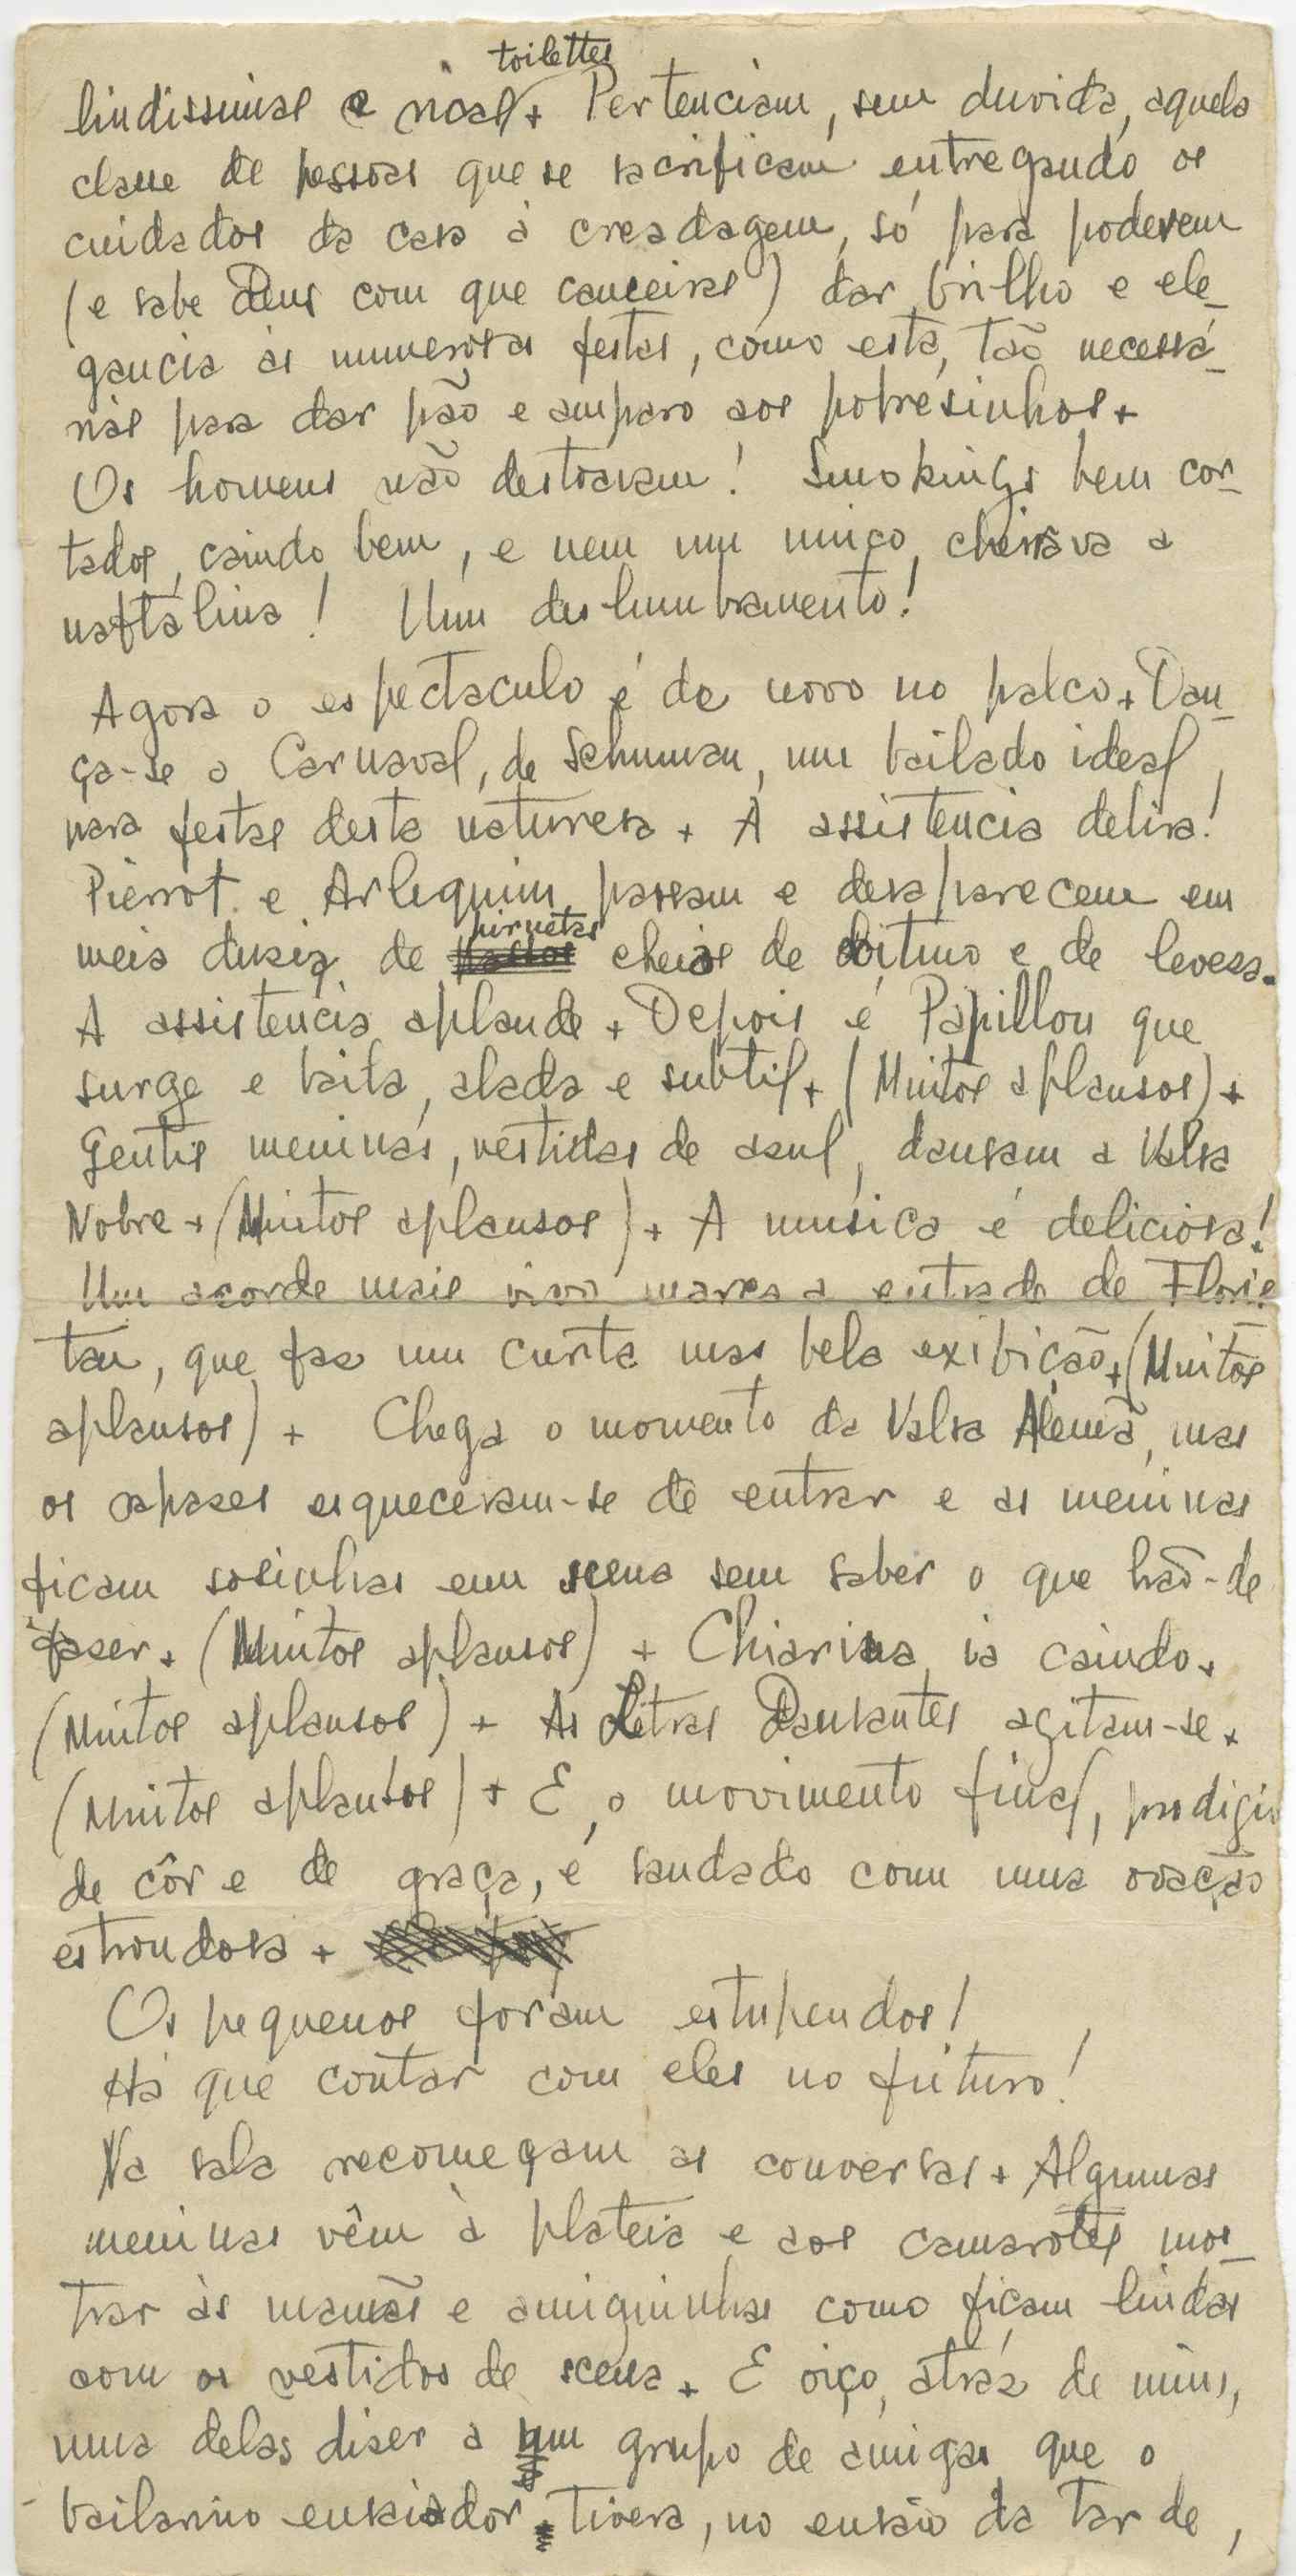 toilettes
lindissimas e ricas + Pertenciam, sem duvida, aquela
classe de pessoas que se sacrificam entregando os
cuidados da casa à creadagem, só para poderem
(e sabe Deus com que canceiras) dar brilho e ele-
gancia às numerosas festas, como esta, tão necessá-
rias para dar pão e amparo aos pobresinhos +
Os homens não destoavam! Smokings bem cor-
tados, caindo bem, e nem um unico cheirava a
naftalina! Um deslumbramento!
Agora o espectaculo é de novo no palco + Dan-
ça-se o Carnaval, de Schuman, um bailado ideal
para festas desta naturesa + A assistencia delira!
Pierrot e Arlequim passam e desaparecem em
piruetas
meia dusia de cheias de ritmo e de levesa.
A assistencia aplaude + Depois é Papillon que
surge e baila, alada e subtil + (Muitos aplausos) +
Gentis meninas, vestidas de asul, dansam a Valsa
Nobre + (Muitos aplausos) + A musica é deliciosa!
Um acorde mais vivo marca a entrada de Flores-
tan, que faz um curta mas bela exibição + (Muitos
aplausos) + Chega o momento da Valsa Alemã, mas
os rapases esqueceram-se de entrar e as meninas
ficam sosinhas em scena sem saber o que hão-de
faser + (Muitos aplausos) + Chiarina ia caindo +
(Muitos aplausos) + As Letras Dansantes agitam-se +
(Muitos aplausos) + E, o movimento final, prodigio
de côr e de graça, é saudado com uma ovação
estrondosa +
Os pequenos foram estupendos!
Há que contar com eles no futuro!
Na sala recomeçam as conversas + Algumas
meninas vêm à plateia e aos camarotes mos-
trar às mamãs e amiguinhas como ficam lindas
com os vestidos de scena + E oiço, atráz de mim,
uma delas diser a um grupo de amigas que o
bailarino ensaiador tivera, no ensaio da tarde,